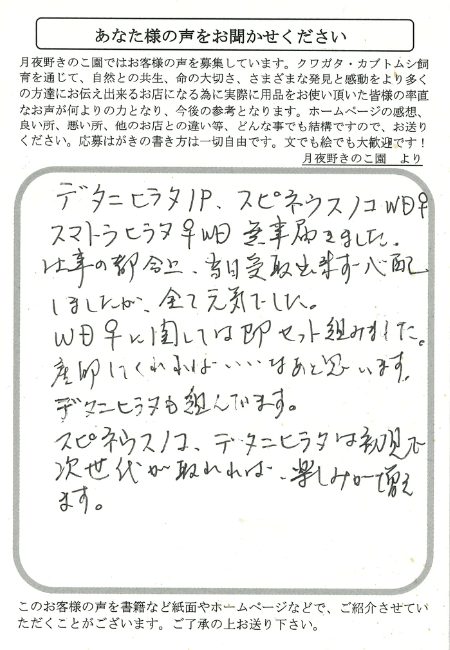 あなた様の声をお聞かせください
月夜野きのこ園ではお客様の声を募集しています。クワガタ・カブトムシ飼
育を通じて、自然との共生、命の大切さ、さまざまな発見と感動をより多く
の方達にお伝え出来るお店になる為に実際に用品をお使い頂いた皆様の率直
なお声が何よりの力となり、今後の参考となります。ホームページの感想、
良い所、悪い所、他のお店との違い等、どんな事でも結構ですので、お送り
ください。応募はがきの書き方は一切自由です。文でも絵でも大歓迎です！
月夜野きのこ園　より
デタニヒラタ1P、スピネウスノコWD♀
スマトラヒラタ♀WD 無事届きました。
仕事の都合上、当日受取出来ず心配
しましたが、全て元気でした。
WD♀に関しては即セット組みました。
産卵してくれれば・・・なあと思います。
デタニヒラタも組んでます。
スピネウスノコ、デタニヒラタは初見で
次世代が取れれば、楽しみが増え
ます。
このお客様の声を書籍など紙面やホームページなどで、ご紹介させてい
ただくことがございます。ご了承の上お送り下さい。